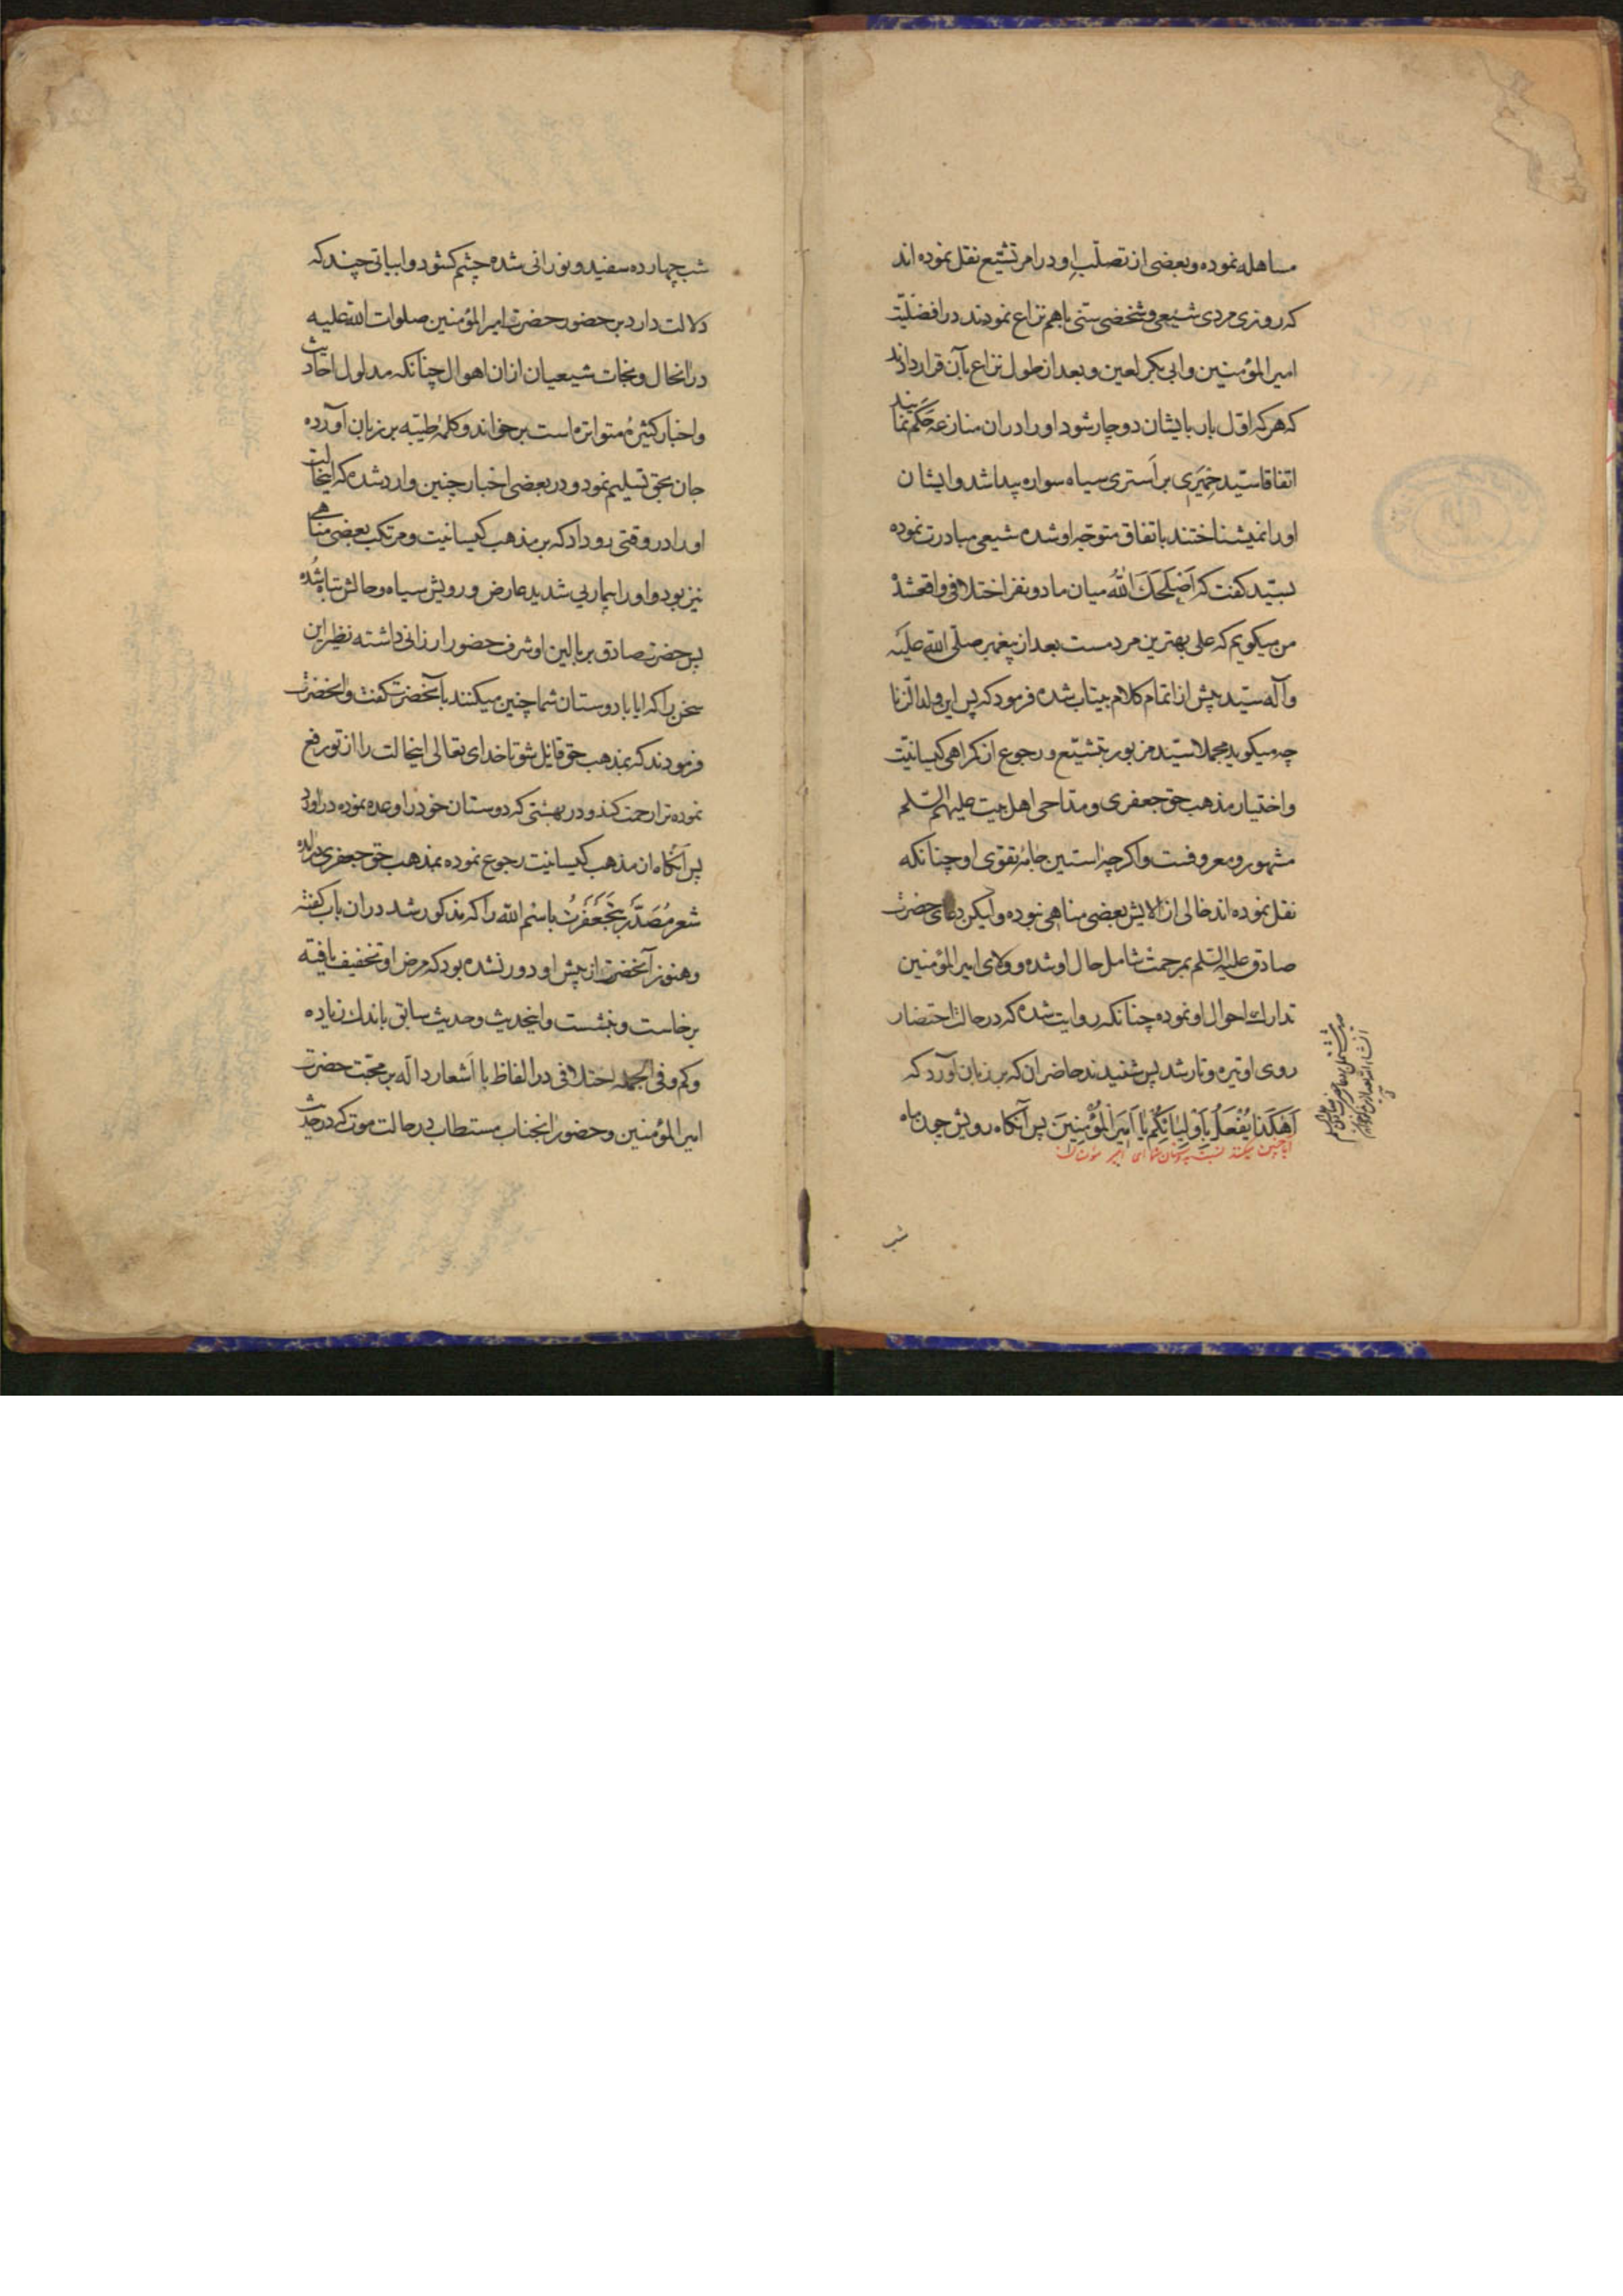 مساهله نموده و بعضی از تصلّب او در امر تشیّع نقل نموده اند
که روزی مردی شیعی و شخصی سنّی باهم نزاع نمودند در افضلیّت
امیر المؤمنین و ابی بکر لعین و بعد از طول نزاع بآن قرار دادند
که هر که اوّل بار بایشان دوچار شود او را در ان منازعه حَکَم نمایند
اتفاقا سیّد حِمْیَری بر اَستری سیاه سواره پیدا شد و ایشان
او را نمیشناختند باتفاق متوجّه او شده شیعی مبادرت نموده
بسیّد کفت که اَصْلَحَکَ اللّٰهُ میان ما دو نفر اختلافی واقعشدْ
من میکویم که علی بهترین مردمست بعد از پیغمبر صلّی اللّه علیَه
و آله سیّد پیش از اتمام کلام بیتاب شده فرمود که پس این ولد الزّنا
چه میکوید مجملا سیّد مزبور بتشیّع و رجوع از کمراهی کیسانیّت
و اختیار مذهب حق جعفری و مدّاحی اهل بیت علیهم السّلم
مشهور و معروفست و اکرچه استین جامهٔ تقوی او چنانکه
نقل نموده اند خالی از الایش بعضی مناهی نبوده ولیکن دعای حضرت
صادق علیه السّلم بمرحمت شامل حال او شده و ولای امیر المؤمنین
تدارك احوال او نموده چنانکه روایت شده که در حالت احتضار
روی او تیره و تار شد پس شنیدند حاضران که بر زبان آورد که
اَهٰکَذٰا یُفْعَلُ بِاَوْلِیٰائِکُمْ یٰا اَمیرَ الْمُؤْمِنینَ پس آنکاه رویش چون ماه
ایا چنین میکنند نسبت بدوستان شما ای امیر مؤمنان
شب
شب چهارده سفید و نورانی شده چشم کشود و ابیاتی چند که
دلالت دارد بر حضور حضرت امیر المؤمنین صلوات اللّه علیه
در انحال و نجات شیعیان از ان اهوال چنانکه مدلول احادیث
و اخبار کثیرهٔ متواتره است بر خواند و کلمهٔ طیّبه بر زبان آورده
جان بحق تسلیم نمود و در بعضی اخبار چنین وارد شده که اینحالت
او را در وقتی رو داد که بر مذهب کیسانیت و مرتکب بعضی مناهی
نیز بود و او را بیماریی شدید عارض و رویش سیاه و حالش تباه شُده
پس حضرت صادق بر بالین او شرف حضور ارزانی داشته نظیر این
سخن را که ایا با دوستان شما چنین میکنند بآنحضرت کفت و انحضرت
فرمودند که بمذهب حق قایل شو تا خدای تعالی اینحالت را از تو رفع
نموده ترا رحمت کند و در بهشتی که دوستان خود را وعده نموده دراورد
پس آنکاه از مذهب کیسانیت رجوع نموده بمذهب حق جعفری درامده
شعر مُصَدَّر بِتَجَعْفَرْتُ باسْم اللّه را که مذکور شد در ان باب کفته
و هنوز آنحضرت از پیش او دور نشده بود که مرض او تخفیف یافته
برخاست و بنشست و اینحدیث و حدیث سابق باندك زیاده
و کم و فی الجمله اختلافی در الفاظ با اَشعار دالّه بر محبّت حضرت
امیر المؤمنین و حضور انجناب مستطاب در حالت موت که در حدیث